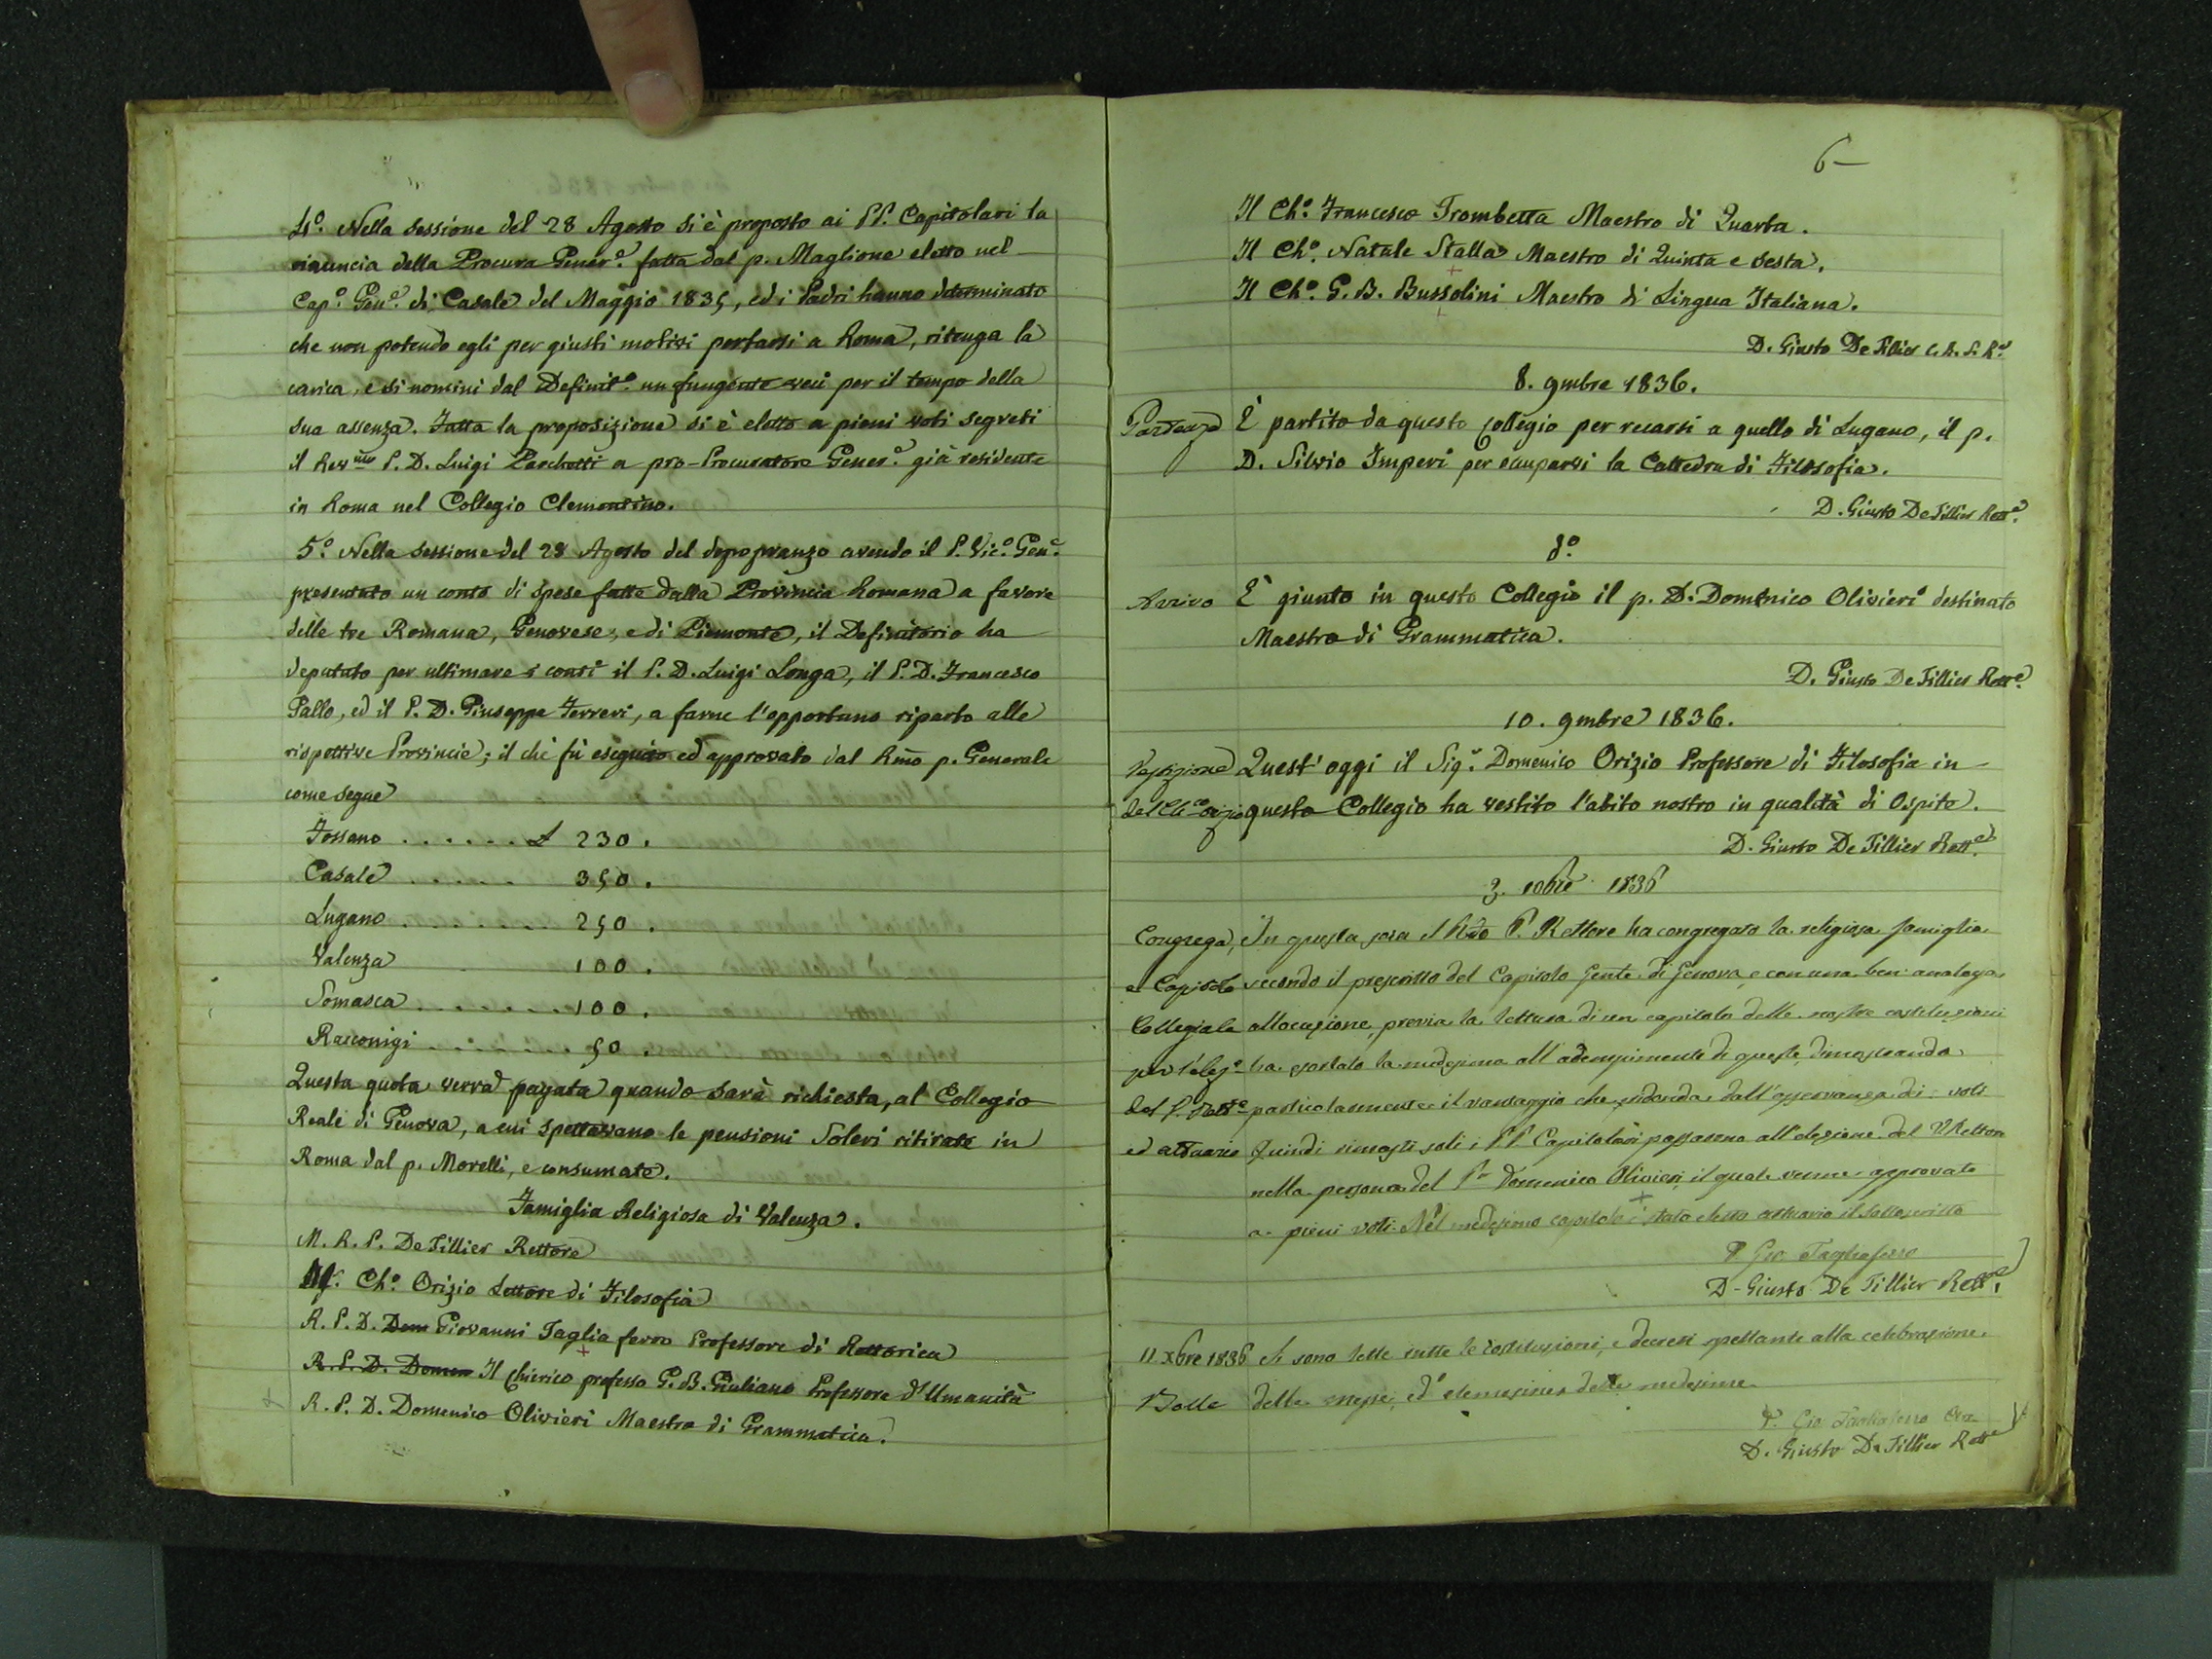 4.º Nella sessione del 28 Agosto si è proposto ai PP. Capitolari la
rinuncia della Procura Gener.e fatta dal p. Maglione eletto nel
Cap.º Gen.e di Casale del Maggio 1835, ed i Padri hanno determinato
che non potendo egli per giusti motivi portarsi a Roma, ritenga la
carica, e si nomini dal Definit.º un fungente veci per il tempo della
sua assenza. Fatta la proposizione si è eletto a pieni voti segreti
il Rev.mo P. D. Luigi Parchetti a pro-Procuratore Gener.e già residente
in Roma nel Collegio Clementino.
5.º Nella sessione del 28 Agosto del dopopranzo avendo il P. Vic.º Gen.e
presentato un conto di spese fatte dalla Provincia Romana a favore
delle tre Romana, Genovese, e di Piemonte, il Definitorio ha
deputato per ultimare i conti il P. D. Luigi Longa, il P. D. Francesco
Gallo, ed il P. D. Giuseppe Ferreri, a farne l'opportuno riparto alle
rispettive Provincie; il chè fù eseguito ed approvato dal Rmo p. Generale
come segue
Fossano . . . . . . £ 230.
Casale . . . . . 350.
Lugano . . . . . . . . 250.
Valenza 100.
Somasca . . . . . . . 100.
Racconigi . . . . . . . 50.
Questa quota verrà pagata quando sarà richiesta, al Collegio
Reale di Genova, a cui spettavano le pensioni Soleri ritirate in
Roma dal p. Morelli, e consumate.
Famiglia Religiosa di Valenza.
M. R. P. De Tillier Rettore
Ch.º Orizio Lettore di Filosofia
R. P. D. Dom Giovanni Tagliaferro Professore di Rettorica
R. P. D. Domen Il Chierico professo G. B. Giuliano Professore d'Umanità
R. P. D. Domenico Olivieri Maestro di Grammatica.
6
Il Ch.º Francesco Trombetta Maestro di Quarta.
Il Ch.º Natale Stalla Maestro di Quinta e sesta.
Il Ch.º G. B. Bussolini Maestro di Lingua Italiana.
D. Giusto De Tillier C. R. S. R.e
8. 9mbre 1836.
Partenza È partito da questo Collegio per recarsi a quello di Lugano, il p.
D. Silvio Imperi per occuparvi la Cattedra di Filosofia.
D. Giusto De Tillier Rett.e
d.º
Arrivo È giunto in questo Collegio il p. D. Domenico Olivieri destinato
Maestro di Grammatica.
D. Giusto De Tillier Rett.e
10. 9mbre 1836.
Vestizione Quest'oggi il Sig.r Domenico Orizio Professore di Filosofia in
del Ch.co Orizio questo Collegio ha vestito l'abito nostro in qualità di Ospite.
D. Giusto De Tillier Rett.e
3. 10bre 1836
Congrega, In questa sera il Rdo P. Rettore ha congregato la religiosa famiglia
e Capitolo secondo il prescritto del Capitolo Gente. di Genova, e con una ben analoga
Collegiale allocuzione, previa la lettura di un capitolo delle nostre costituzioni
per l'elez.e ha esortato la medesima all'adempimento di queste, dimostrando
del V. Rett.e particolarmente il vantaggio che ridonda dall'osservanza di voti
ed attuario Quindi rimasti soli i PP. Capitolari passarono all'elezione del V. Rettore
nella persona del P. Domenico Olivieri, il quale venne approvato
a pieni voti. Nel medesimo capitolo è stato eletto attuario il sottoscritto
P. Gio. Tagliaferro
D. Giusto De Tillier Rett.e
11 Xbre 1836 Si sono lette tutte le costituzioni, e decreti spettanti alla celebrazione
Bolle delle messe, ed elemosine delle medesime
P. Gio. Tagliaferro
D. Giusto De Tillier Rett.e